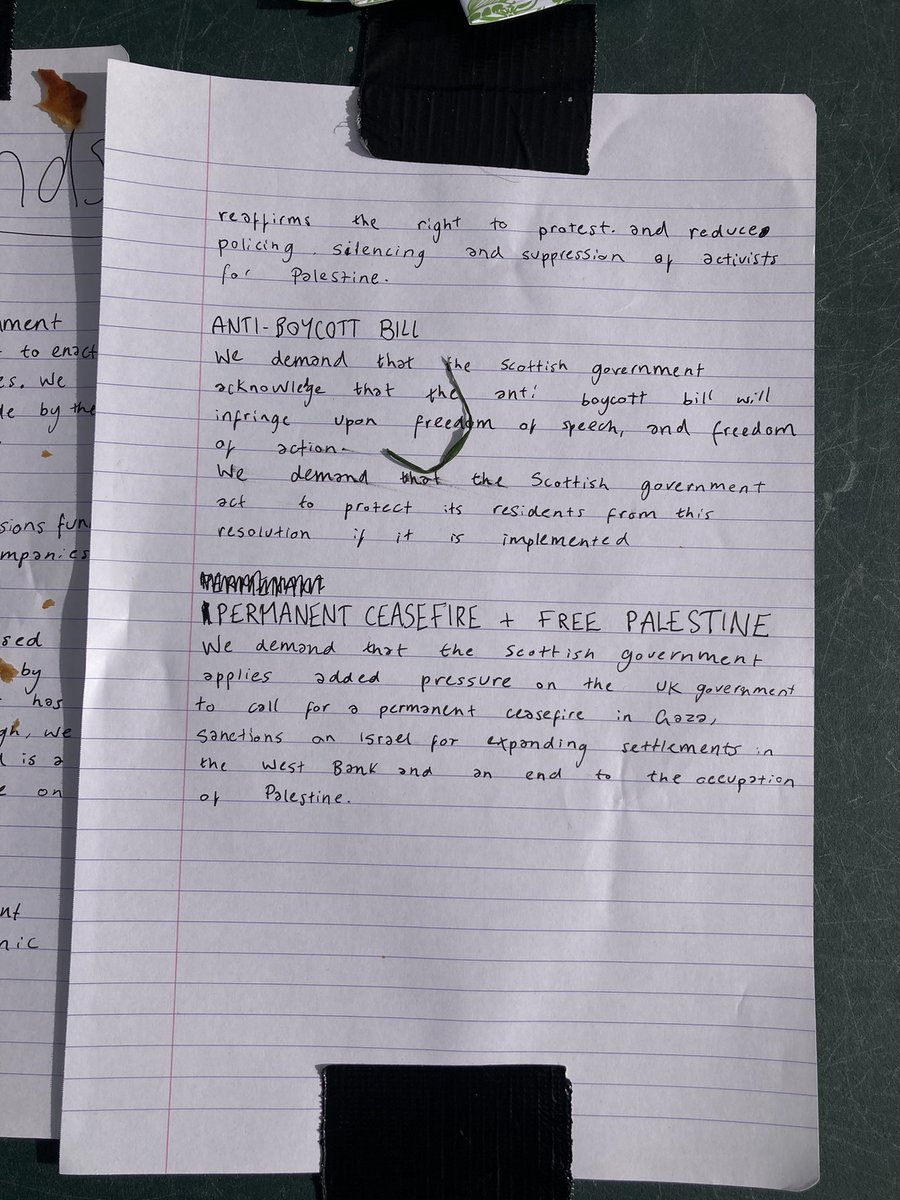 nds
nment
to enact
es. We
de by the
sions fun
mpanies
sed
by
has
gh, we
d is a
e on
nt
nic
reaffirms the right to protest. and reduces
policing, silencing and suppression of activists
for Palestine.
ANTI-BOYCOTT BILL
We demand that the Scottish government
acknowlege that the anti boycott bill will
infringe upon freedom of speech, and freedom
of action.
We demand that the Scottish government
act to protect its residents from this
resolution if it is implemented
PERMANENT CEASEFIRE + FREE PALESTINE
We demand that the Scottish government
applies added pressure on the UK government
to call for a permanent ceasefire in Gaza,
sanctions on Israel for expanding settlements in
the West Bank and an end to the occupation
of Palestine.